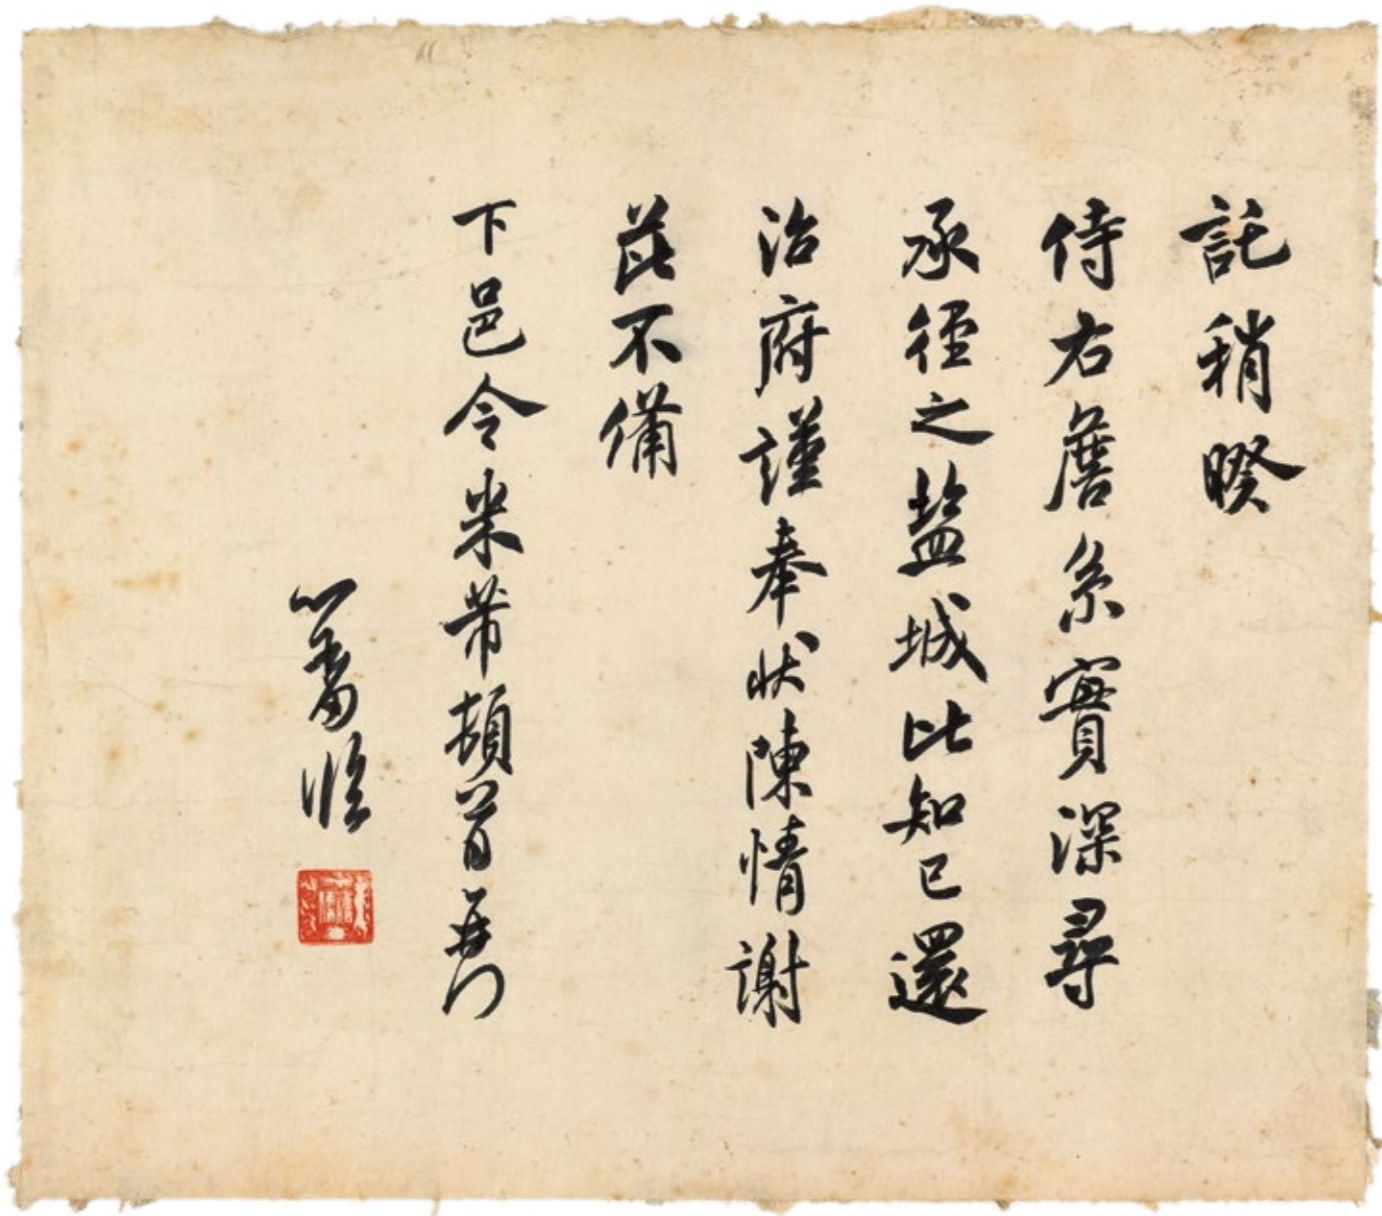 託稍暌
侍右詹系實深尋
承徑之盐城比知已還
治府謹奉状陳情謝
茲不備
下邑令米芾頓首再
心畬臨